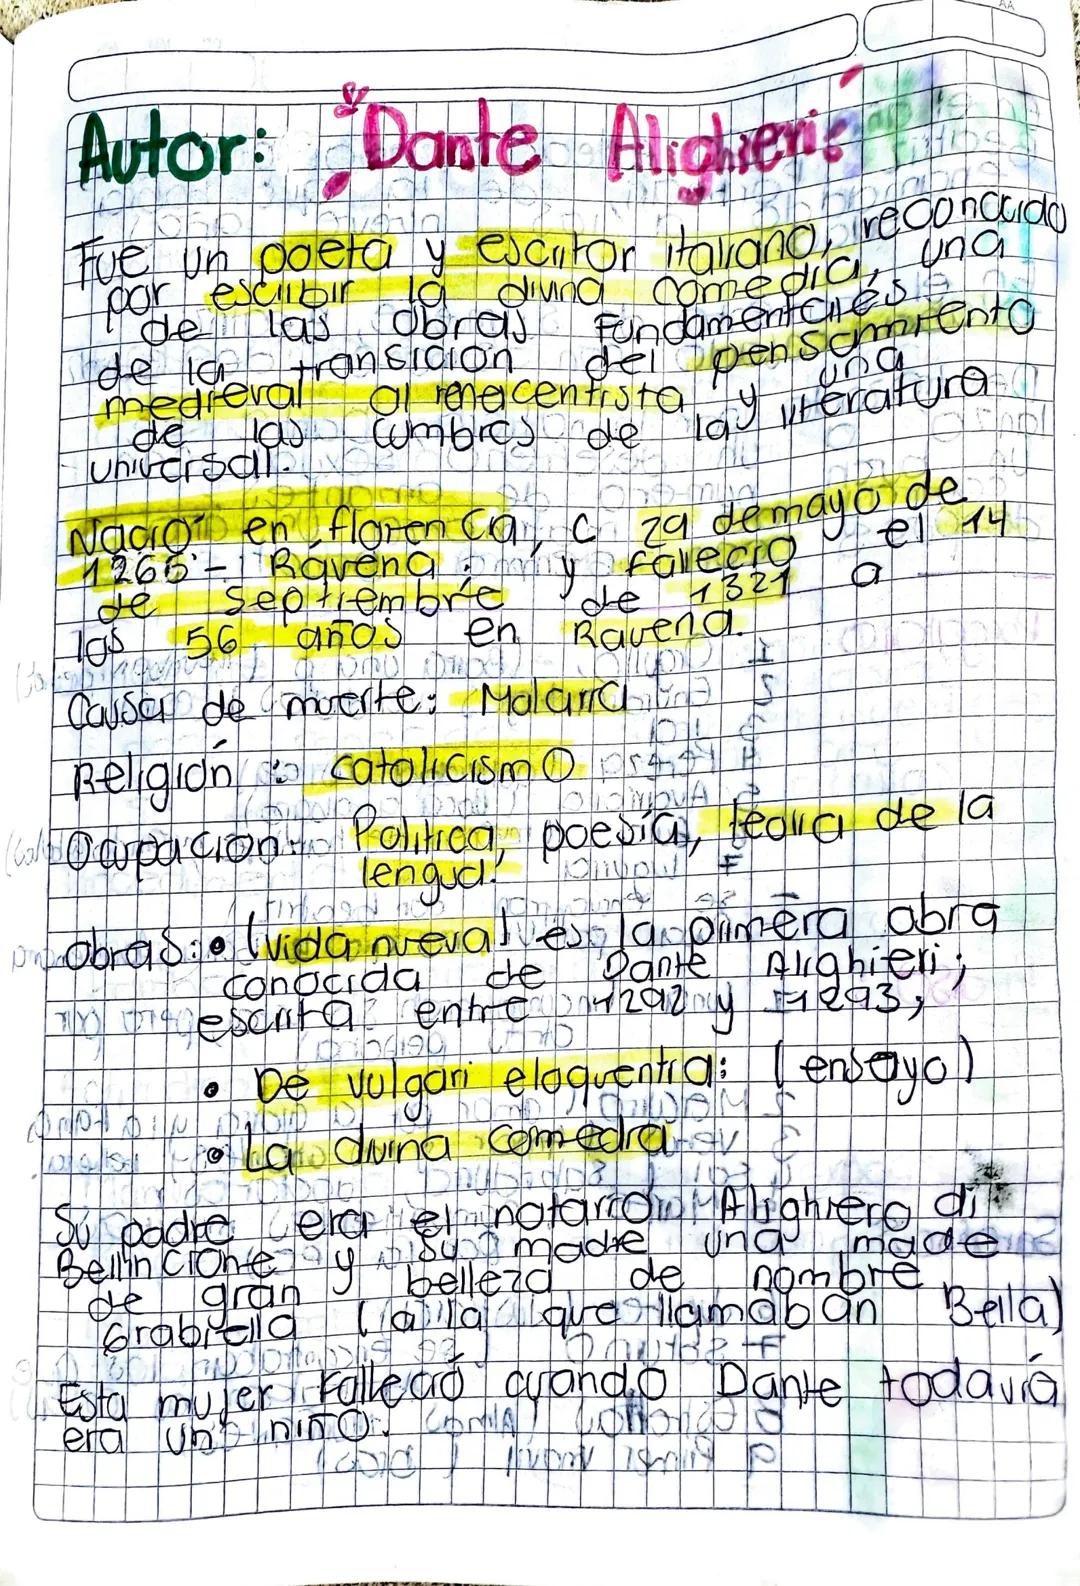 Autor: "Dante Alighieri"
Fue un poeta y escritor italiano, reconocido
por escribir la divina comedia, una
de las obras fundamentales
de la transicion del pensamiento
medieval al renacentista y una
de las cumbres de la literatura
universal.
Nació en florenca, c 29 de mayo de
1265 - Ravena; y fallecio el 14
de septiembre de 1321 a
los 56 años en Ravena.
Causa de muerte: Malaria
Religión: catolicismo
Ocupacion: Politica, poesía, teoria de la
lengua.
obras: • (vida nueva) es la primera obra
conocida de Dante Alighieri;
escrita entre 1292 y 1293,
• De vulgari eloquentia: (ensayo)
• La divina comedia
Su padre era el notario Alighiero di
Bellincione y su madre una made
de gran belleza de nombre
Grabiella (a la que llamaban Bella)
Esta mujer falleció cuando Dante todavía
era un niño.